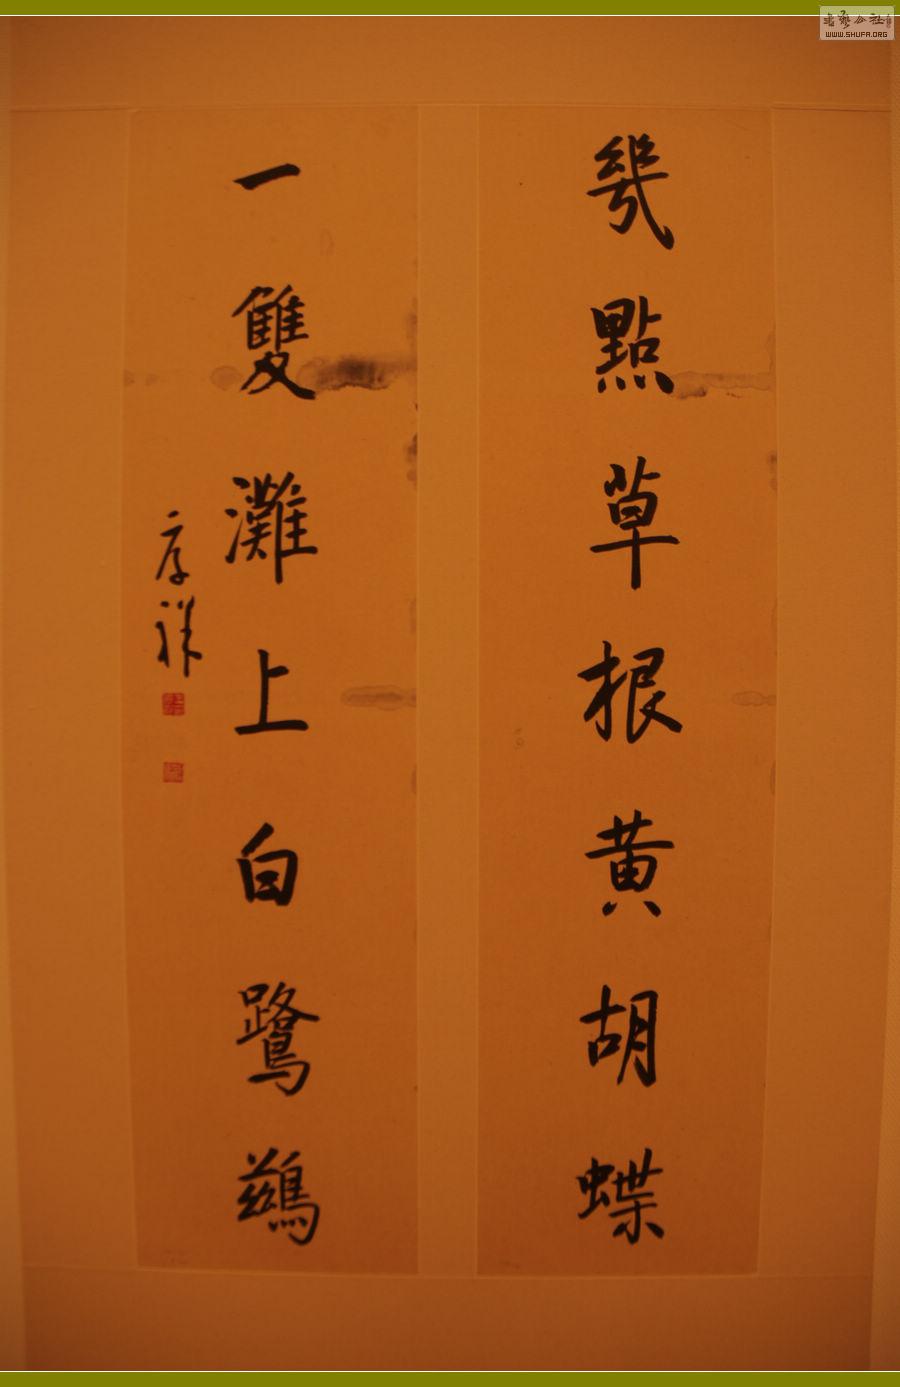 幾點草根黄胡蝶
一雙灘上白鷺鷀
孝祥
書藝公社
WWW.SHUFA.ORG